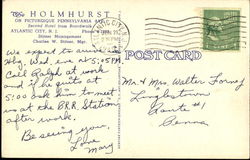 The HOLMHURST
ON PICTURESQUE PENNSYLVANIA AVE.
Second Hotel from Boardwalk
ATLANTIC CITY, N. J.
Street Management
Charles W. Stitzer, Mgr.
POST CARD
We expect to arrive in
Hbg. Wed. eve at 5:05 P.M.
Call Ralph at work
and if he quits at
5:00 ask him to meet
us at the P.R.R. Station
after work.
Be seeing you,
Love
Mary
Mr & Mrs Walter Forney
Linglestown
Route #1
Penna